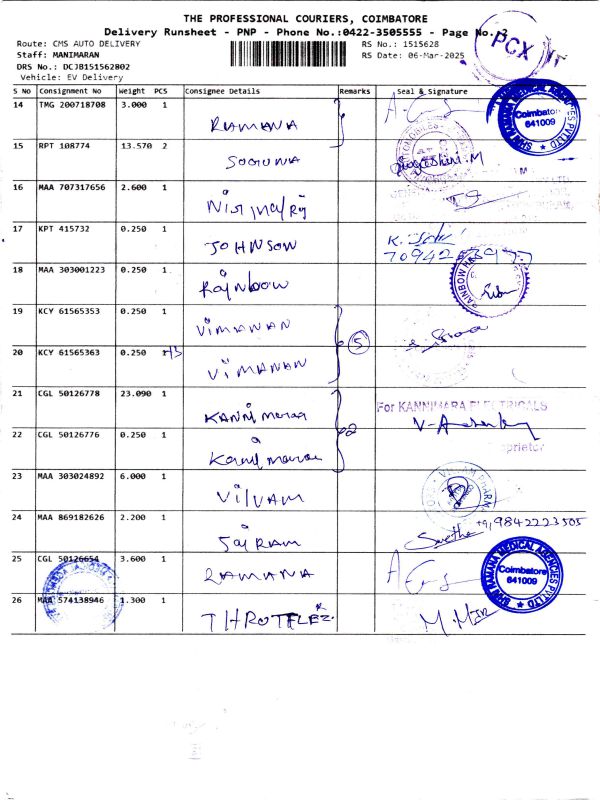 THE PROFESSIONAL COURIERS, COIMBATORE
Delivery Runsheet - PNP - Phone No.:0422-3505555 - Page No.
PCX
Route: CMS AUTO DELIVERY
RS No.: 1515628
Staff: MANIMARAN
RS Date: 06-Mar-2025
DRS No.: DCJB151562802
Vehicle: EV Delivery
S No Consignment No Weight PCS Consignee Details Remarks Seal & Signature
14 TMG 200718708 3.000 1 RAMANA
SHRI RAMANA MEDICAL AGENCIES PVT LTD
Coimbatore
641009
15 RPT 108774 13.570 2
16 MAA 707317656 2.600 1
17 KPT 415732 0.250 1 JOHNSON
18 MAA 303001223 0.250 1 Rainbow
RAINBOW
19 KCY 61565353 0.250 1 VIMANAN
5
20 KCY 61565363 0.250 VIMANAN
21 CGL 50126778 23.090 1 KANNimaraa
For KANNIMARA ELECTRICALS
2
22 CGL 50126776 0.250 1 Kannimaraa
23 MAA 303024892 6.000 1 VilVAM
24 MAA 869182626 2.200 1 Jai RAM
Swetha 9842223505
25 CGL 50126654 3.600 1 RAMANA
SHRI RAMANA MEDICAL AGENCIES PVT LTD
Coimbatore
641009
26 MAA 574138946 1.300 1